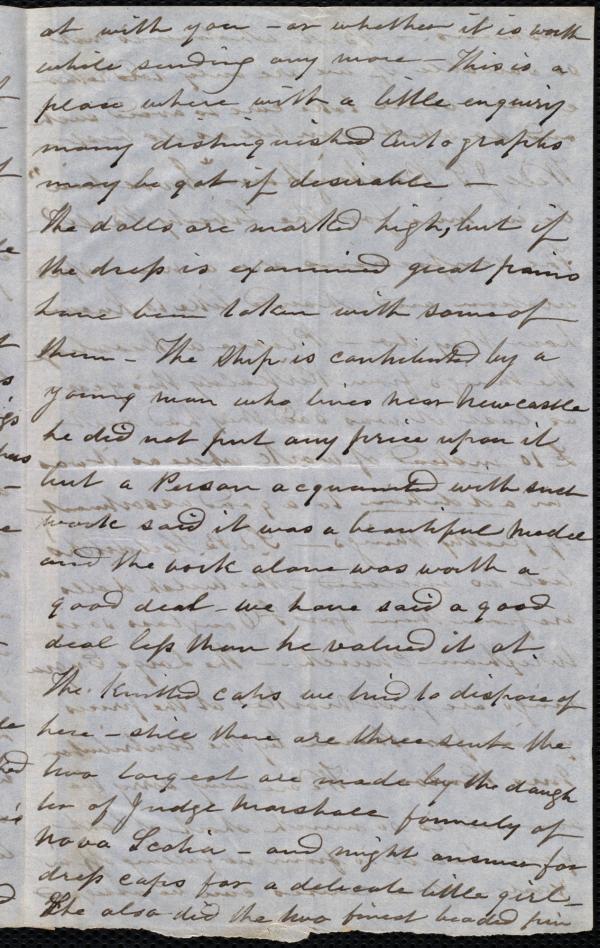 at with you - or whether it is worth
while sending any more - This is a
place where with a little enquiry
many distinguished Autographs
may be got if desirable -
The dolls are marked high, but if
the dress is examined great pains
have been taken with some of
them - The Ship is contributed by a
young man who lives near Newcastle
he did not put any price upon it
but a Person acquainted with such
work said it was a beautiful Model
and the work alone was worth a
good deal - we have said a good
deal less than he valued it at
The Knitted caps we tried to dispose of
here - still there are three sent the
two largest are made by the daugh
ter of Judge Marshall formerly of
Nova Scotia - and might answer for
dress caps for a delicate little girl -
She also did the two finest beaded pin